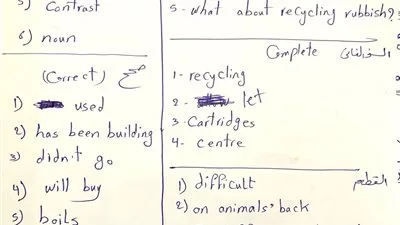 5) Contrast
6) noun
(Correct) صحح
1) used
2) has been building
3) didn't go
4) will buy
5) boils
5- what about recycling rubbish?
Complete
1- recycling
2- let
3- Cartridges
4- centre
القطعة
1) difficult
2) on animals' back